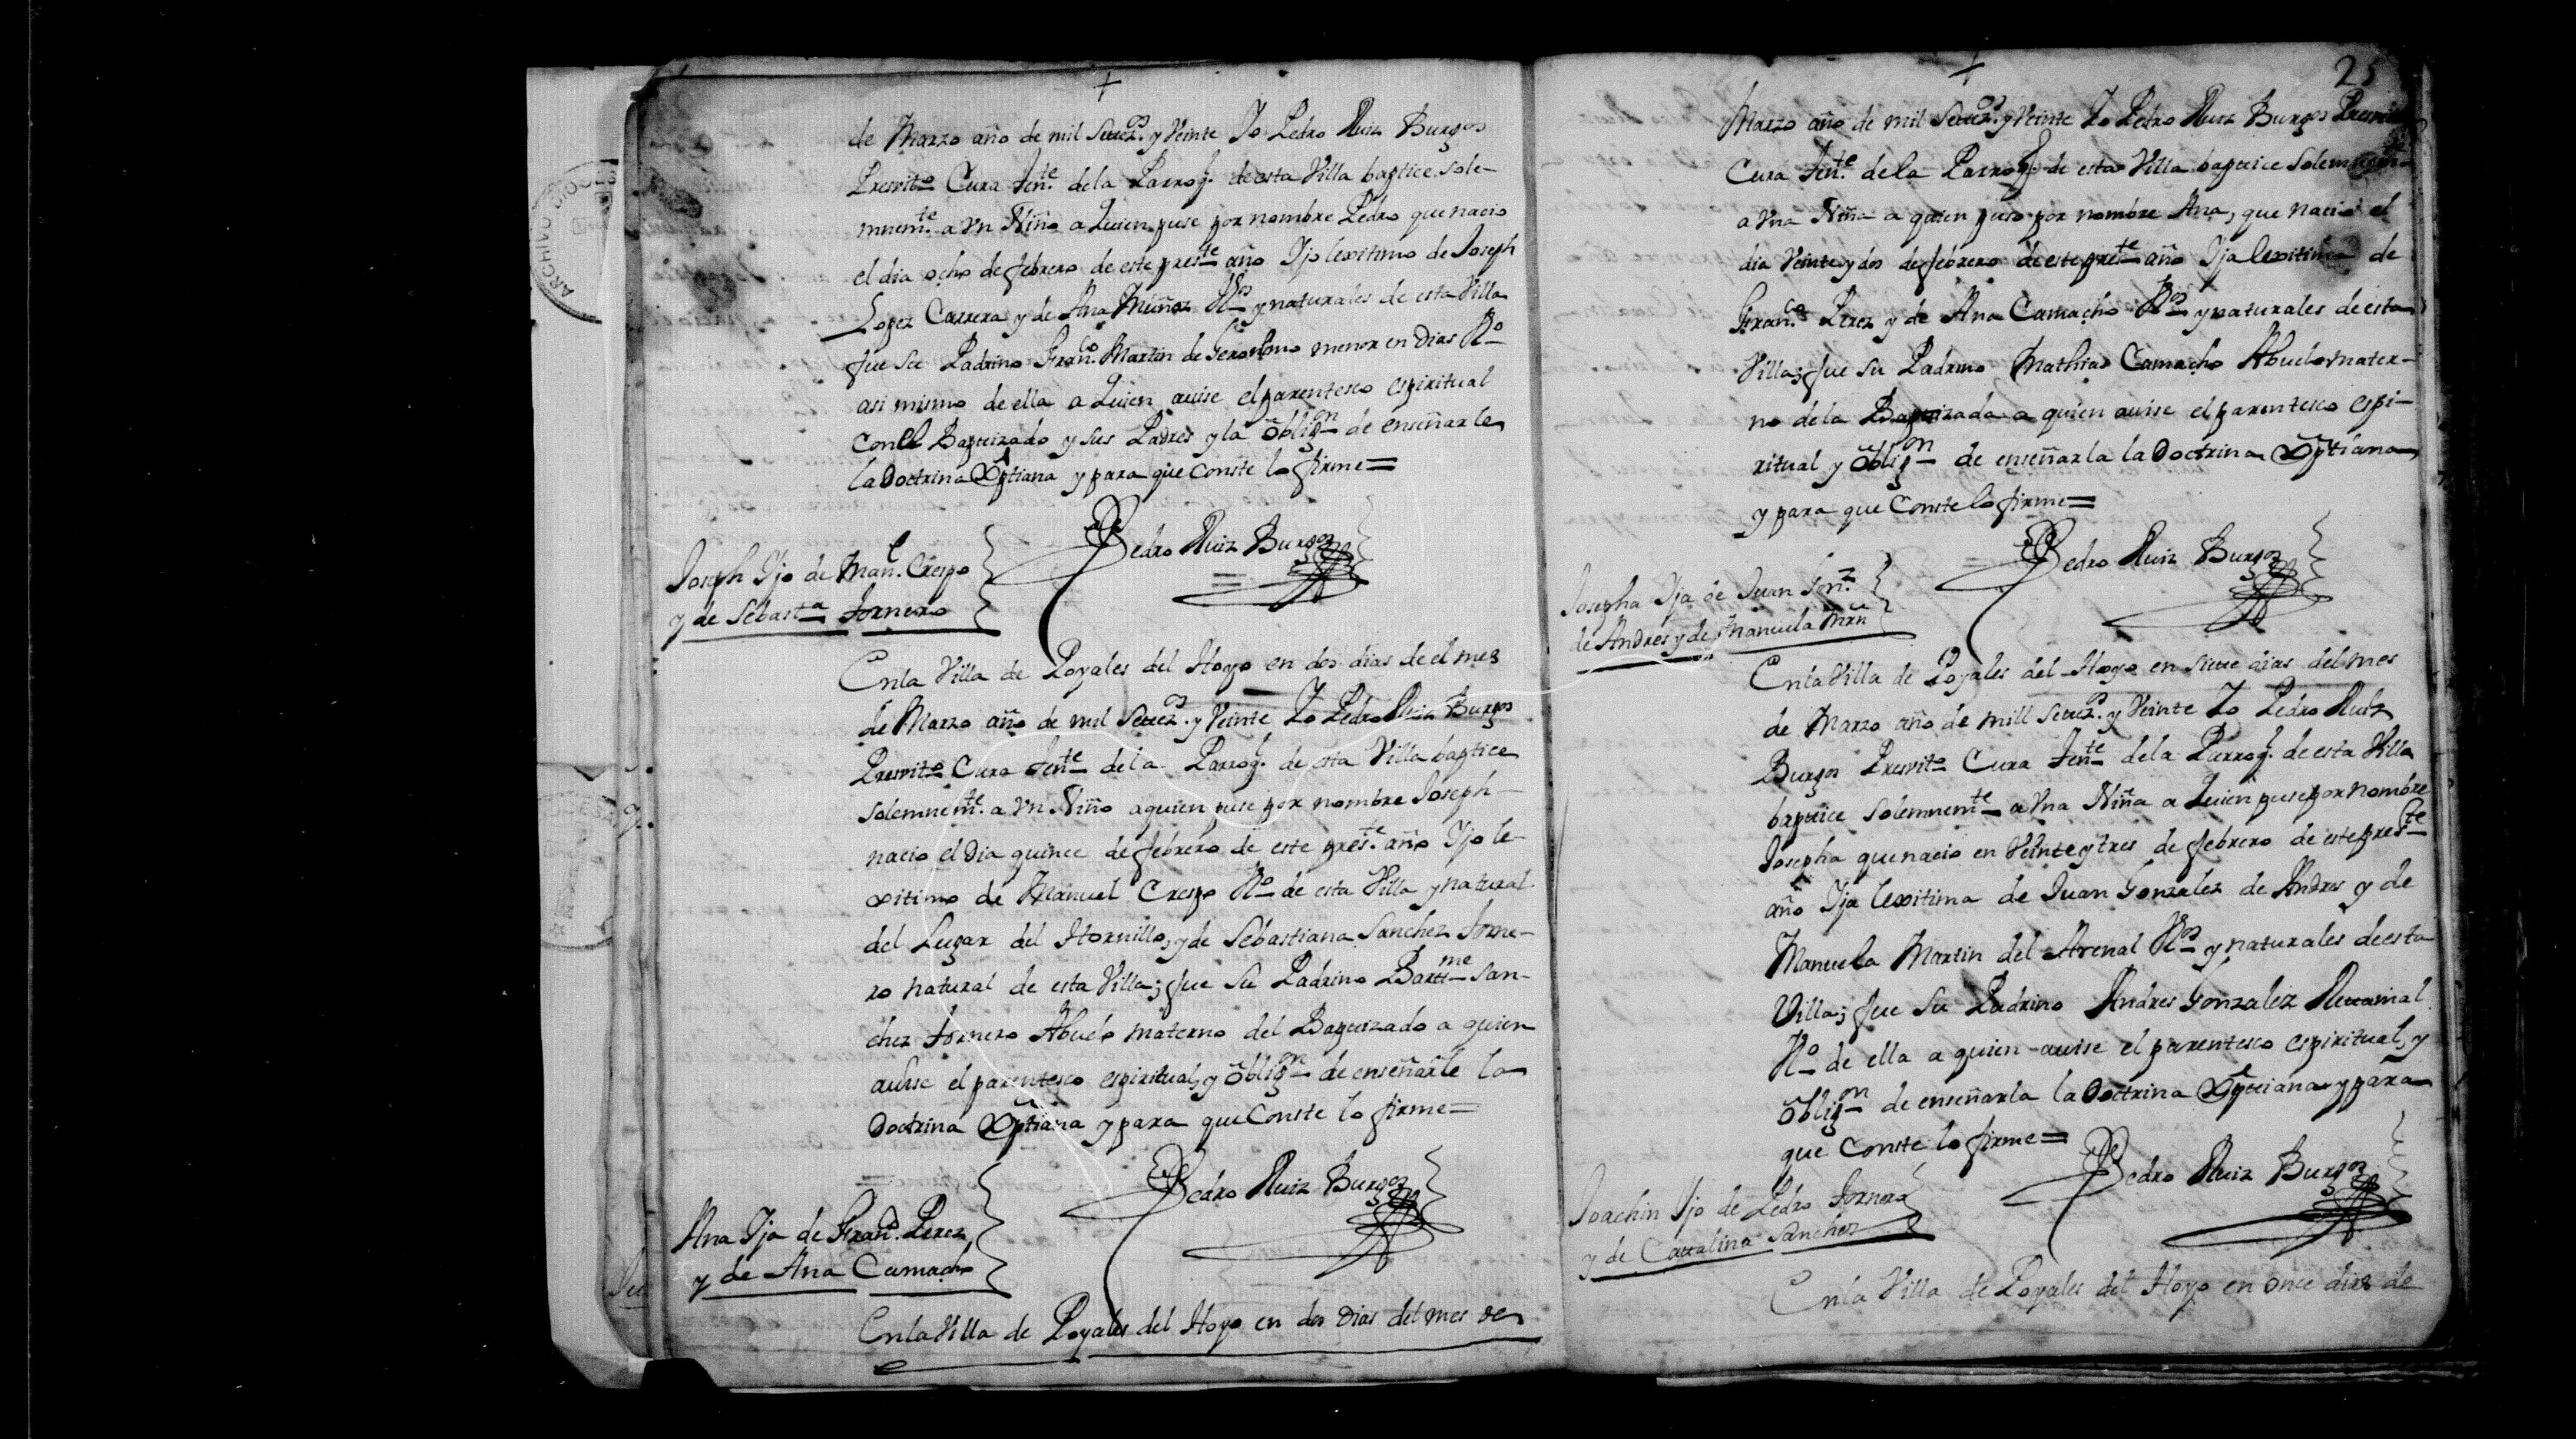 de Marzo año de mil Setezos. y Veinte Yo Pedro Ruiz Burgos
Presvito Cura Tente. de la Parroq. de esta Villa baptice sole-
mnemte. a Vn Niño a Quien puse por nombre Pedro que nacio
el dia ocho de febrero de este preste año Yjo lexitimo de Joseph
Lopez Carrera y de Ana Muñoz Vos y naturales de esta Villa
fue su Padrino Franco. Martin de Geronimo menor en dias Vo
asi mismo de ella a Quien avise el parentesco espiritual
con el Baptizado y sus Padres y la obligon de enseñarle
la Doctrina Xptiana y para que conste lo firme=
Pedro Ruiz Burgos
Joseph Yjo de Manl. Crespo
y de Sebasta Fornero
En la Villa de Poyales del Hoyo en dos dias de el mes
de Marzo año de mil Setezos. y Veinte Yo Pedro Ruiz Burgos
Presvito Cura Tente de la Parroq. de esta Villa baptice
solemnemte. a Vn Niño a quien puse por nombre Joseph
nacio el Dia quince de febrero de este preste. año Yjo le-
xitimo de Manuel Crespo Vo de esta Villa y natural
del Lugar del Hornillo, y de Sebastiana Sanchez Forne-
ro natural de esta Villa; fue su Padrino Bartme San-
chez Fornero Abuelo materno del Baptizado a quien
avise el parentesco espiritual, y obligon de enseñarle la
Doctrina Xptiana y para que Conste lo firme=
Pedro Ruiz Burgos
Ana Yja de Franco. Perez
y de Ana Camacho
En la Villa de Poyales del Hoyo en dos Dias del mes de
25
Marzo año de mil Setezos. y Veinte Yo Pedro Ruiz Burgos Presvito
Cura Tente. de la Parroq. de esta Villa baptice Solemnemte
a Vna Niña a quien puse por nombre Ana, que nacio el
dia Veinte y dos de febrero de este preste año Yja lexitima de
Franco. Perez y de Ana Camacho Vos y naturales de esta
Villa; fue su Padrino Mathias Camacho Abuelo mater-
no de la Baptizada a quien avise el parentesco espi-
ritual y obligon de enseñarla la Doctrina Xptiana
y para que Conste lo firme=
Pedro Ruiz Burgos
Josepha Yja de Juan Gonz.
de Andres y de Manuela Mrn
En la Villa de Poyales del Hoyo en siete dias del mes
de Marzo año de mill Setezos. y Veinte Yo Pedro Ruiz
Burgos Presvito Cura Tente de la Parroq. de esta Villa
baptice solemnemte a Vna Niña a Quien puse por nombre
Josepha que nacio en Veinte y tres de febrero de este preste
año Yja lexitima de Juan Gonzalez de Andres y de
Manuela Martin del Arenal Vos y naturales de esta
Villa; fue su Padrino Andres Gonzalez
Vo de ella a quien avise el parentesco espiritual, y
obligon de enseñarla la Doctrina Xptiana y para
que Conste lo firme=
Pedro Ruiz Burgos
Joachin Yjo de Pedro Fornero
y de Catalina Sanchez
En la Villa de Poyales del Hoyo en once dias de